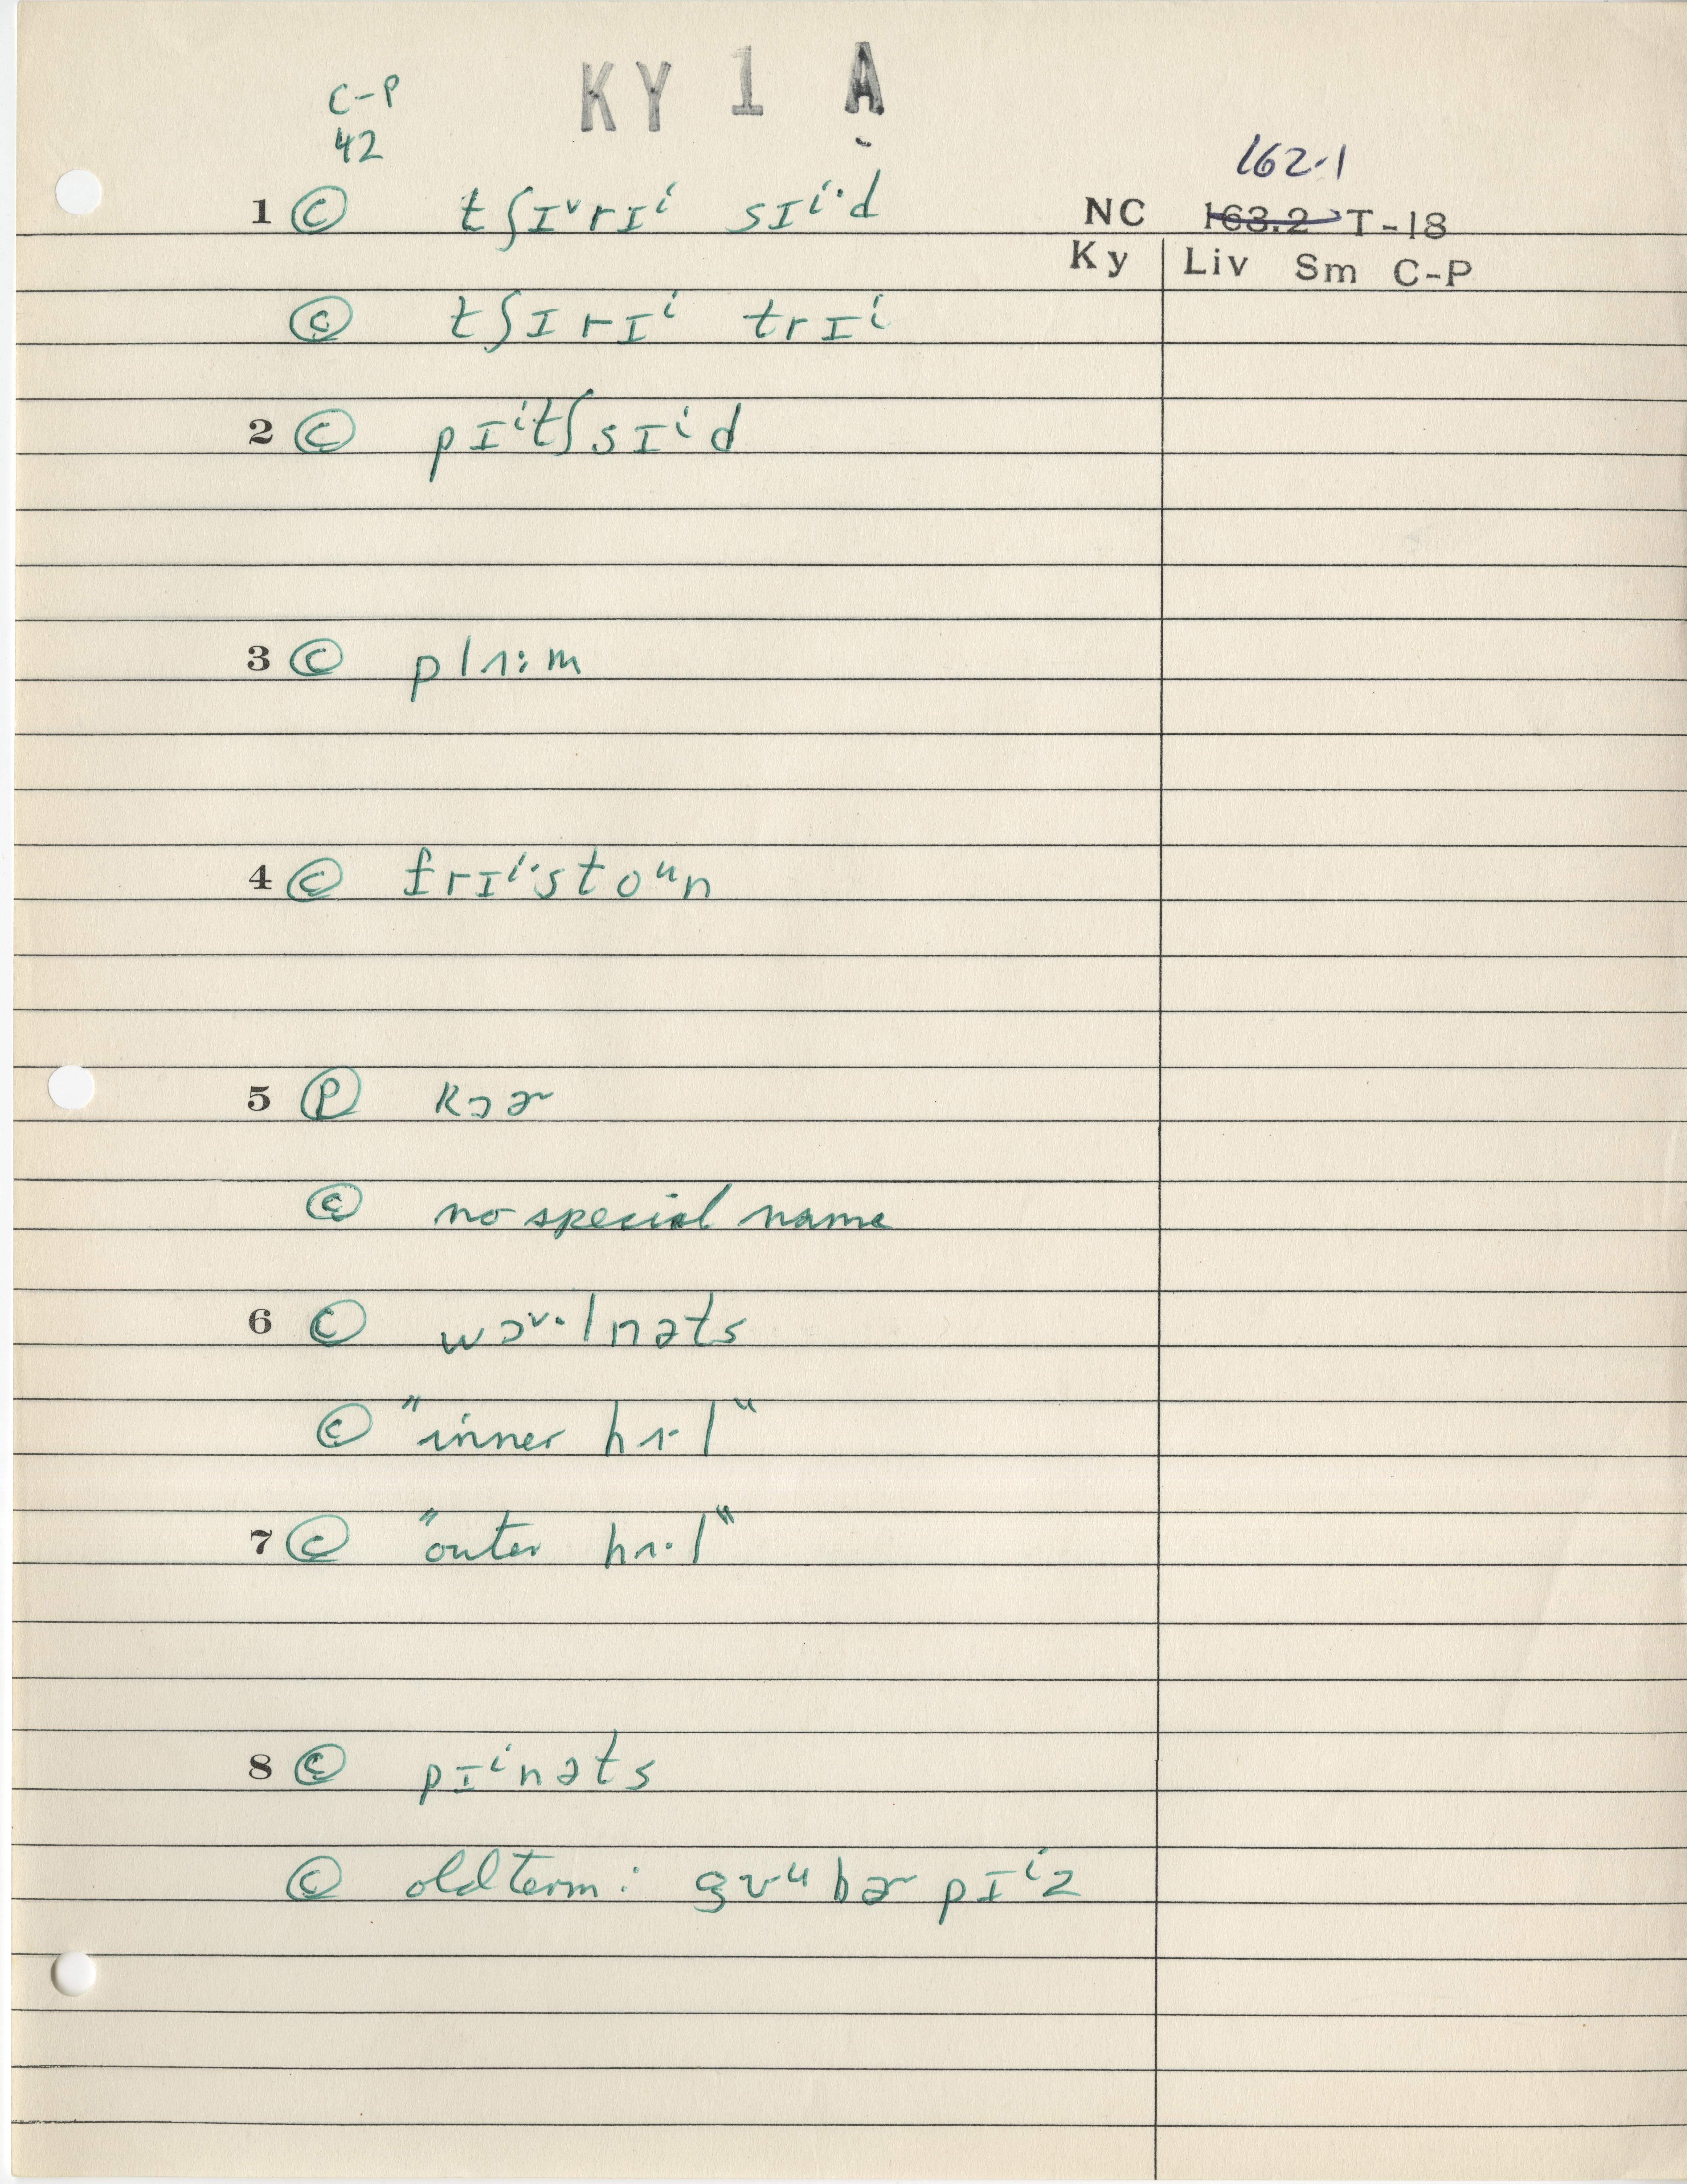 C-P KY 1 A
42
162.1
1 Ⓒ tʃɪᵛrɪⁱ sɪⁱ·d NC 163.2 T-18
Ky Liv Sm C-P
Ⓒ tʃɪrɪⁱ trɪⁱ
2 Ⓒ pɪⁱtʃsɪⁱd
3 Ⓒ plʌ:m
4 Ⓒ frɪⁱ·stoᵘn
5 Ⓟ kɔɚ
Ⓒ no special name
6 Ⓒ wɔᵛ·lnəts
Ⓒ "inner hʌ·l"
7 Ⓒ "outer hʌ·l"
8 Ⓒ pɪⁱnəts
Ⓒ old term: gʊᵘbɚ pɪⁱz